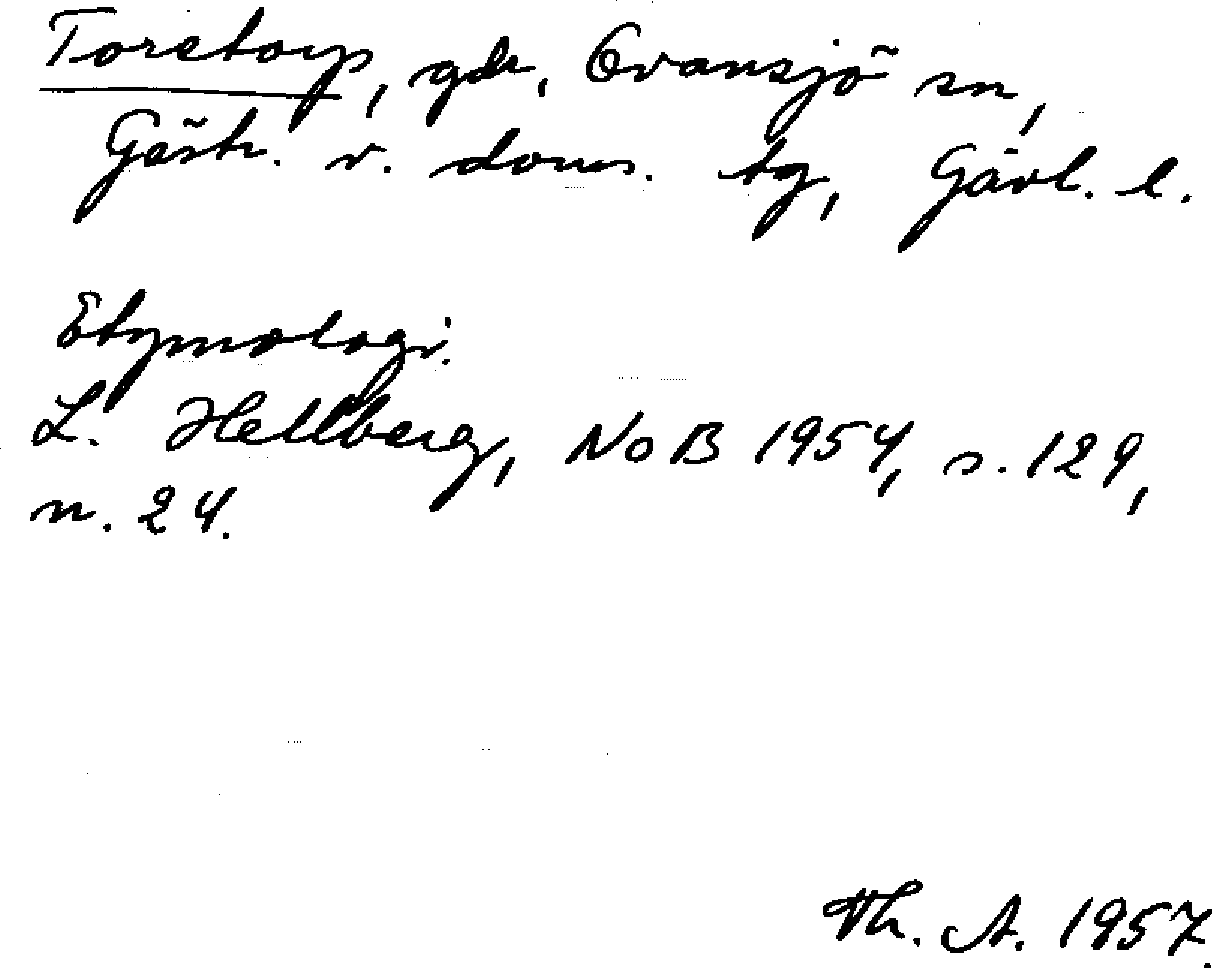 Toretorp, gdr, Ovansjö sn,
Gästr. v. doms. tg, Gävl. l.
Etymologi.
L. Hellberg, NoB 1954, s. 129,
n. 24.
Th. A. 1957.